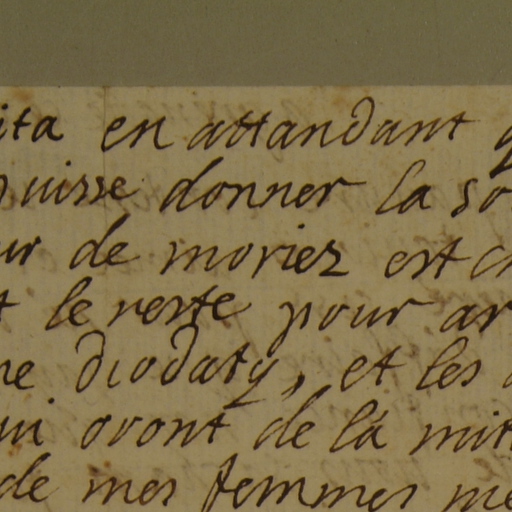 ita en attandant q
puisse donner la so
ur de moriez est ch
t le reste pour ar
ne diodaty, et les
ui oront de la mit
de mes femmes me